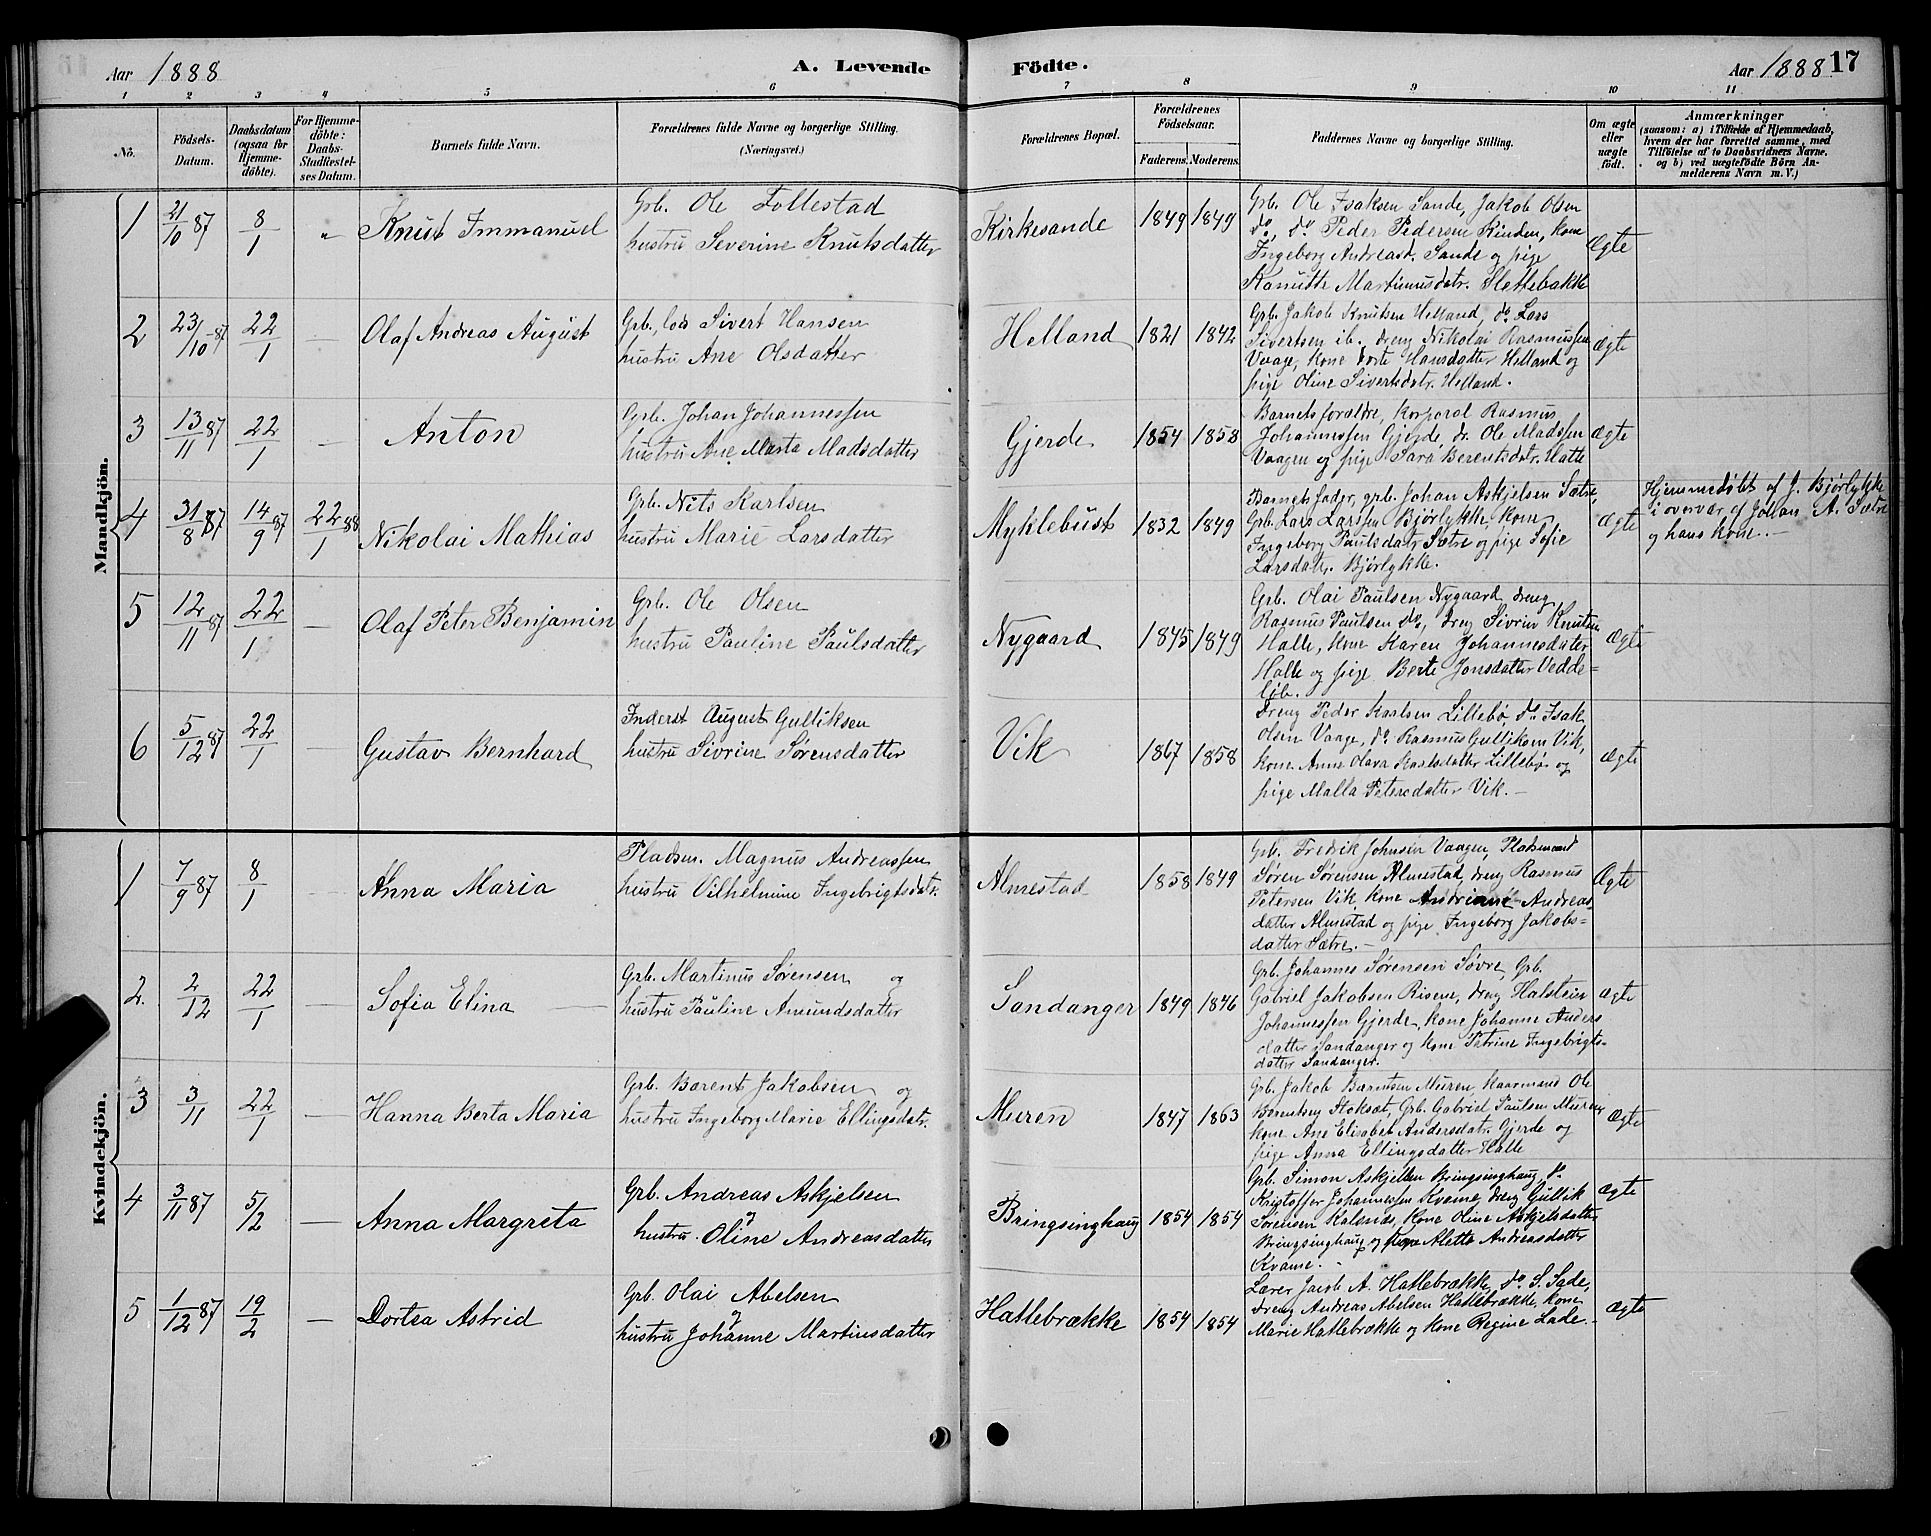 Aar 1888
A. Levende
Födte.
Aar 1888 17
1 2 3 4 5 6 7 8 9 10 11
No.
Födsels-Datum.
Daabsdatum (ogsaa for Hjemmedöbte).
For Hjemmedöbte: Daabs-Stadfæstelses Datum.
Barnets fulde Navn.
Forældrenes fulde Navne og borgerlige Stilling.
(Næringsvei.)
Forældrenes Bopæl.
Forældrenes Födselsaar.
Faderens. Moderens.
Faddernes Navne og borgerlige Stilling.
Om ægte eller uægte født.
Anmærkninger
(saasom: a) i Tilfælde af Hjemmedaab,
hvem der har forrettet samme, med
Tilføielse af to Daabsvidners Navne,
og b) ved uægtefødte Börn Anmelderens Navn m. V.)
Mandkjön.
1 21/10 87 8/1 " Knut Immanuel
Grb. Ole Follestad
hustru Severine Knutsdatter
Kirkesande 1849 1849
Grb. Ole Isaksen Sande, Jakob Olsen
do, do Peder Pedersen Kinden, kone
Ingeborg Andreasd. Sande og pige
Kanutte Martinusdatr. Slettebakke
Ægte
2 23/10 87 22/1 — Olaf Andreas August
Grb., lods Sivert Hansen
hustru Ane Olsdatter
Helland 1821 1842
Grb. Jakob Knutsen Helland, do Lars
Sivertsen ib. dreng Nikolai Rasmussen
Vaage, kone Dorte Hansdatter Helland og
pige Oline Sivertsdtr. Helland.
ægte
3 13/11 87 22/1 — Anton
Grb. Johan Johannessen
hustru Ane Marta Madsdatter
Gjerde 1854 1858
Barnets forældre, Korporal Rasmus
Johannessen Gjerde, dr. Ole Madssen
Vaagen og pige Sara Berentsdatr. Hatle
ægte
4 31/8 87 14/9 87 22/1 88 Nikolai Mathias
Grb. Nils Karlsen
hustru Marie Larsdatter
Myklebust 1832 1849
Barnets fader, grb. Johan Askjelsen Sætre,
Grb. Lars Larssen Bjørlykke, kone
Ingeborg Paulsdatr Sætre og pige Sofie
Larsdatr. Bjørlykke.
ægte
Hjemmedøbt af J. Bjørlykke
i overvær af Johan A. Sætre
og hans kone. —
5 12/11 87 22/1 — Olaf Peter Benjamin
Grb. Ole Olsen
hustru Pauline Paulsdatter
Nygaard 1845 1849
Grb. Olai Paulsen Nygaard, dreng
Rasmus Paulsen do, dreng Sivrin Knutsen
Halle, kone Karen Johannesdatter
Halle og pige Berte Jonsdatter Vedde=
løb.
ægte
6 5/12 87 22/1 — Gustav Bernhard
Inderst August Gulliksen
hustru Sivrine Sørensdatter
Vik 1867 1858
Dreng Peder Karlsen Lillebø do Isak
Olsen Vaage, do Rasmus Gulliksen Vik,
kone Anne Olava Karlsdatter Lillebø og
pige Malla Petersdatter Vik. —
ægte
Kvindekjön.
1 7/9 87 8/1 — Anna Maria
Pladsm. Magnus Andreassen
hustru Vilhelmine Ingebrigtsdatr.
Almestad 1858 1849
Grb. Fredrik Johnsen Vaagen, Pladsmand
Søren Sørensen Almestad, dreng Rasmus
Petersen Vik, kone Andriane Andreas
datter Almestad og pige Ingeborg Jakobs=
datter Sætre. —
Ægte
2. 2/12 22/1 — Sofia Elina —
Grb. Martinus Sørensen og
hustru Pauline Amundsdatter
Sandanger 1849 1846
Grb. Johannes Sørensen Søvre, Grb.
Gabriel Jakobsen Risene, dreng Halstein
Johannessen Gjerde, kone Johanne Anders
datter Sandanger og kone Petrine Ingebrigts=
datter Sandanger.
ægte
3 3/11 22/1 — Hanna Berta Maria
Grb. Barent Jakobsen og
hustru Ingeborg Marie Ellingsdatr.
Muren 1847 1863
Grb. Jakob Barntsen Muren, kaarmand Ole
Berntsen Stoksæt, Grb. Gabriel Paulsen Muren,
kone Ane Elisabet Andersdatr. Gjerde og
pige Anna Ellingsdatter Hatle
ægte
4 3/11 87 5/2 — Anna Margreta
Grb. Andreas Askjelsen
og
hustru Oline Andreasdatter
Bringsinghaug 1854 1854
Grb. Simon Askjellsen Bringsinghaug, do
Kristoffer Johannessen Kvame, dreng Gullik
Sørensen Kalsnæs, kone Oline Askjelsdatter
Bringsinghaug og kone Aletta Andreasdatter
Kvame. -
ægte
5 1/12 87 19/2 — Dortea Astrid
Grb. Olai Abelsen
og
hustru Johanne Martinsdatter
Hatlebrække 1854 1854
Lærer Jacob A. Hatlebrække, do S. Sade,
dreng Andreas Abelsen Hatlebrække, kone
Marie Hatlebrække og kone Regine Lade. -
ægte